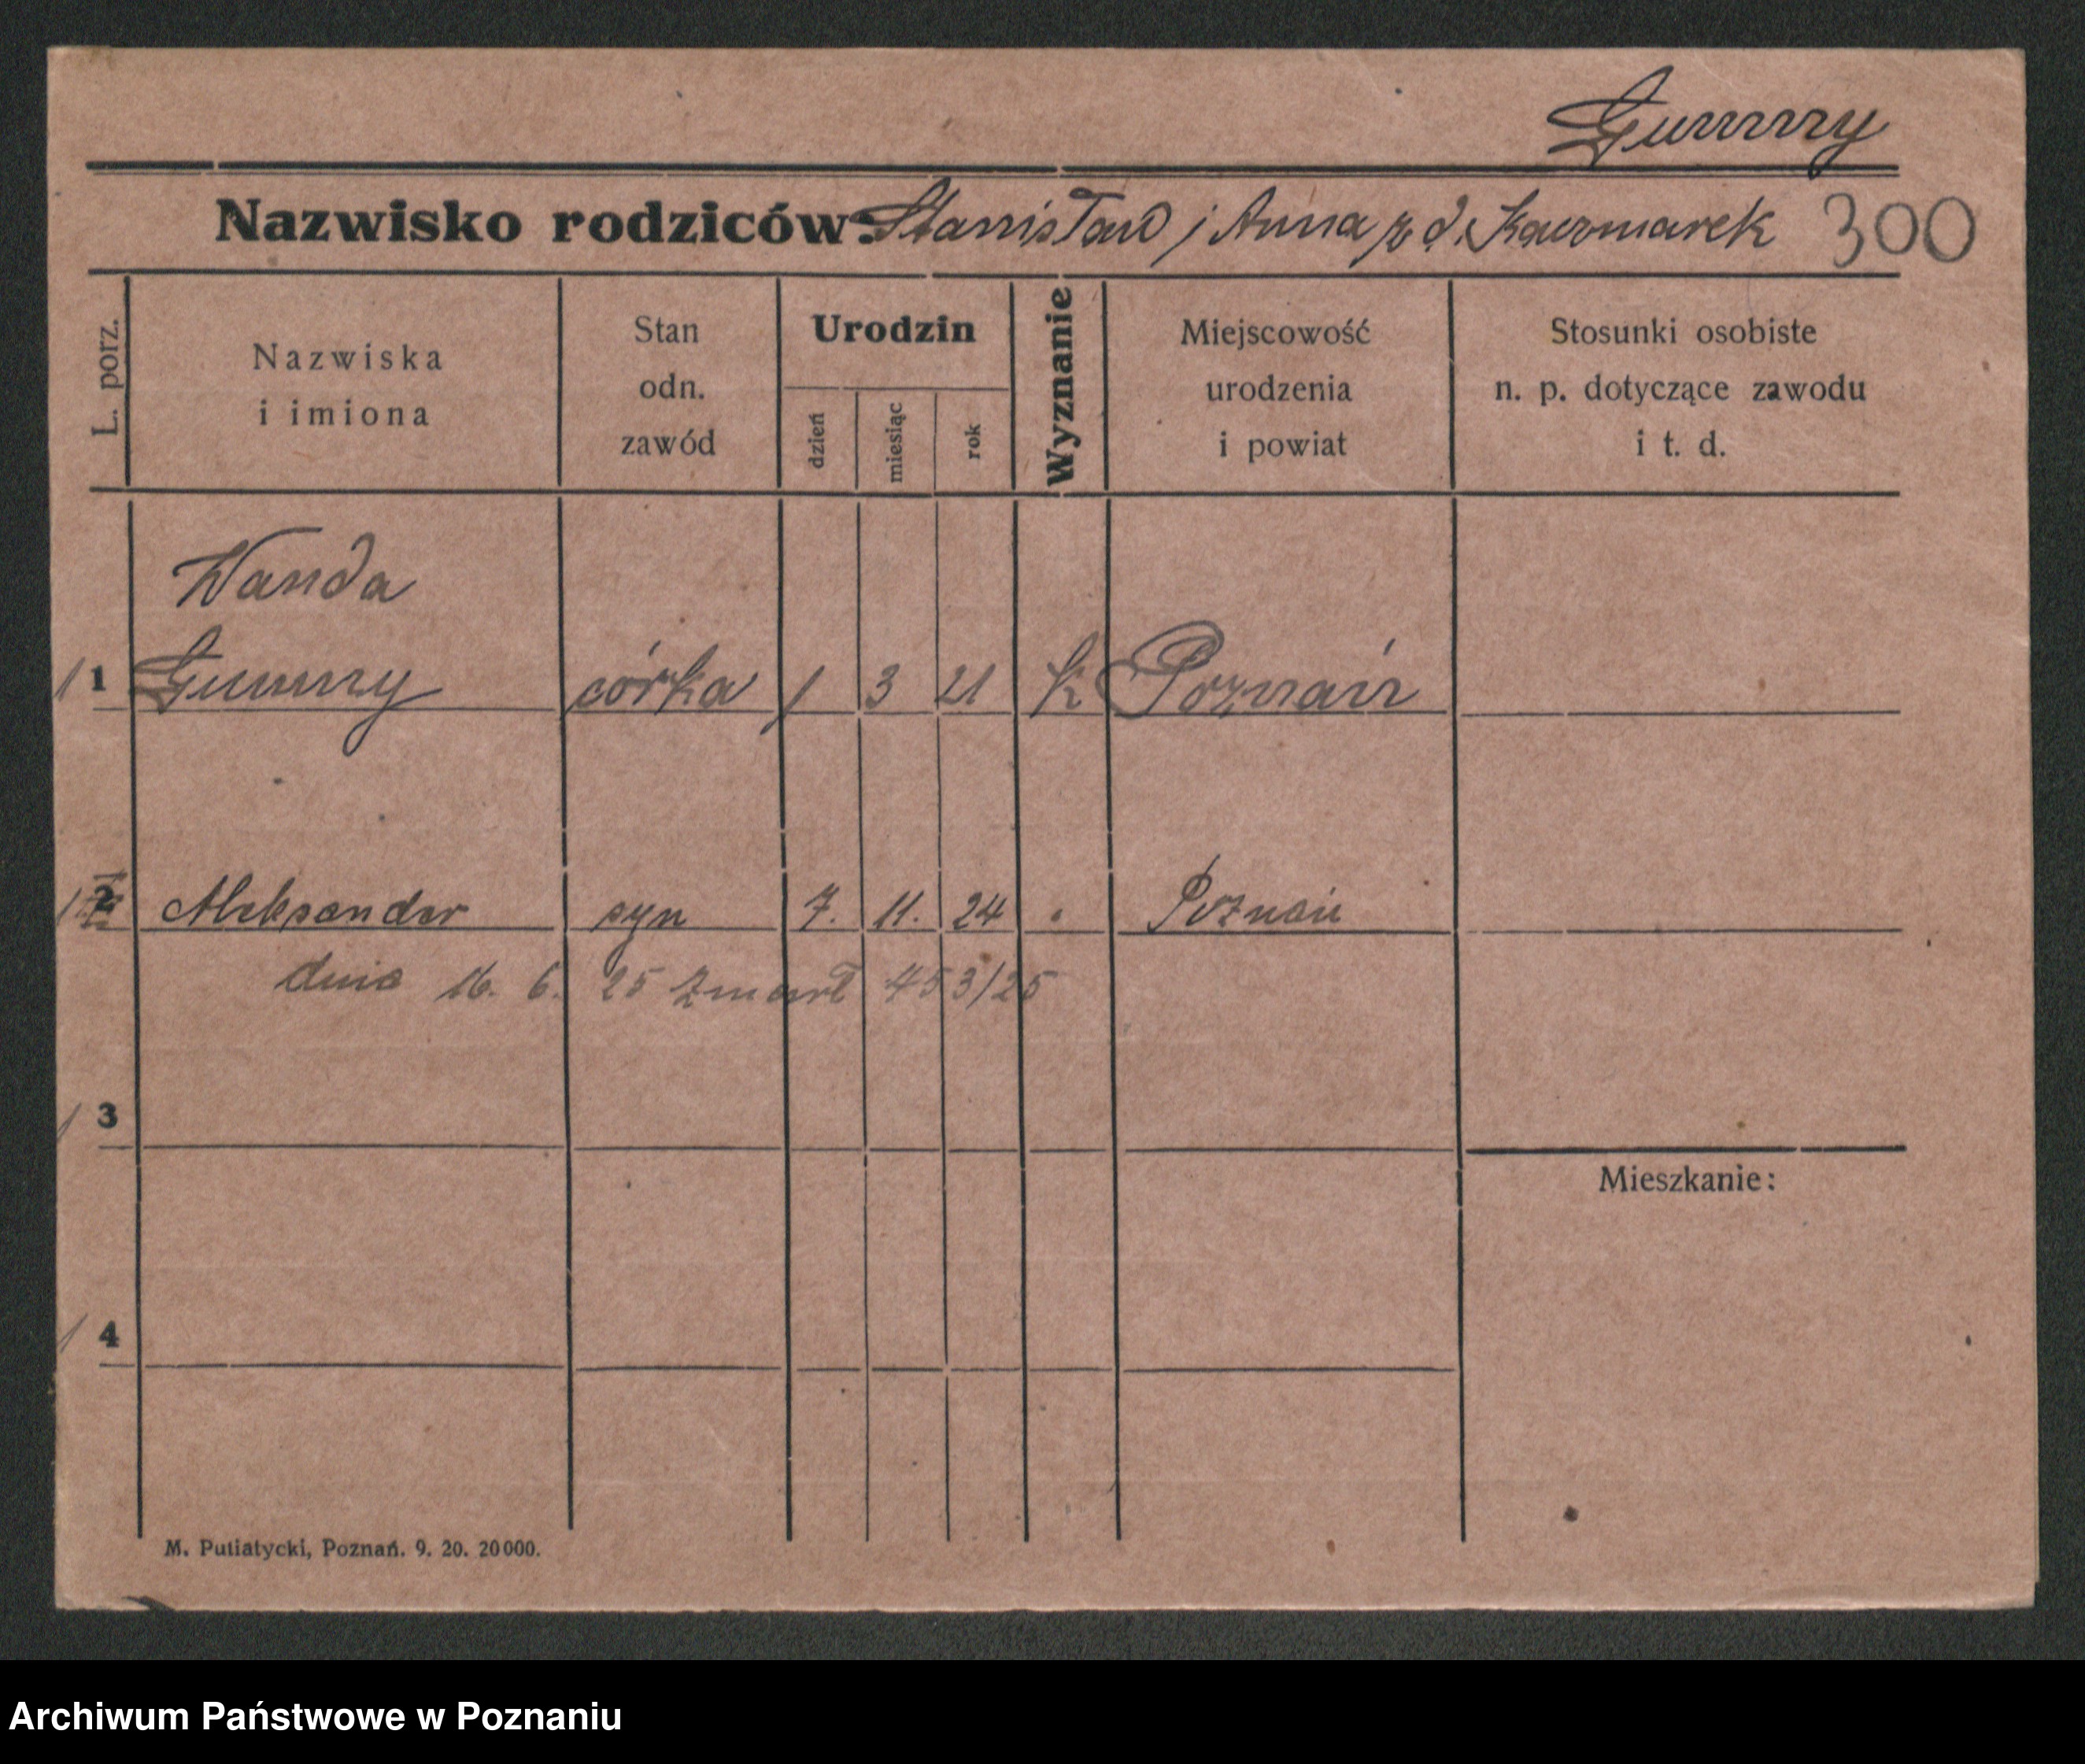 Gumny
Nazwisko rodziców: Stanisław i Anna z d. Kaczmarek 300
L. porz.
Nazwiska
i imiona
Stan
odn.
zawód
Urodzin
dzień
miesiąc
rok
Wyznanie
Miejscowość
urodzenia
i powiat
Stosunki osobiste
n. p. dotyczące zawodu
i t. d.
Wanda
1 Gumny córka 1 3 21 K Poznań
2 Aleksander syn 7. 11. 24 Poznań
dnia 16. 6. 25 zmarł 453/25
3
Mieszkanie:
4
M. Putiatycki, Poznań. 9. 20. 20000.
Archiwum Państwowe w Poznaniu